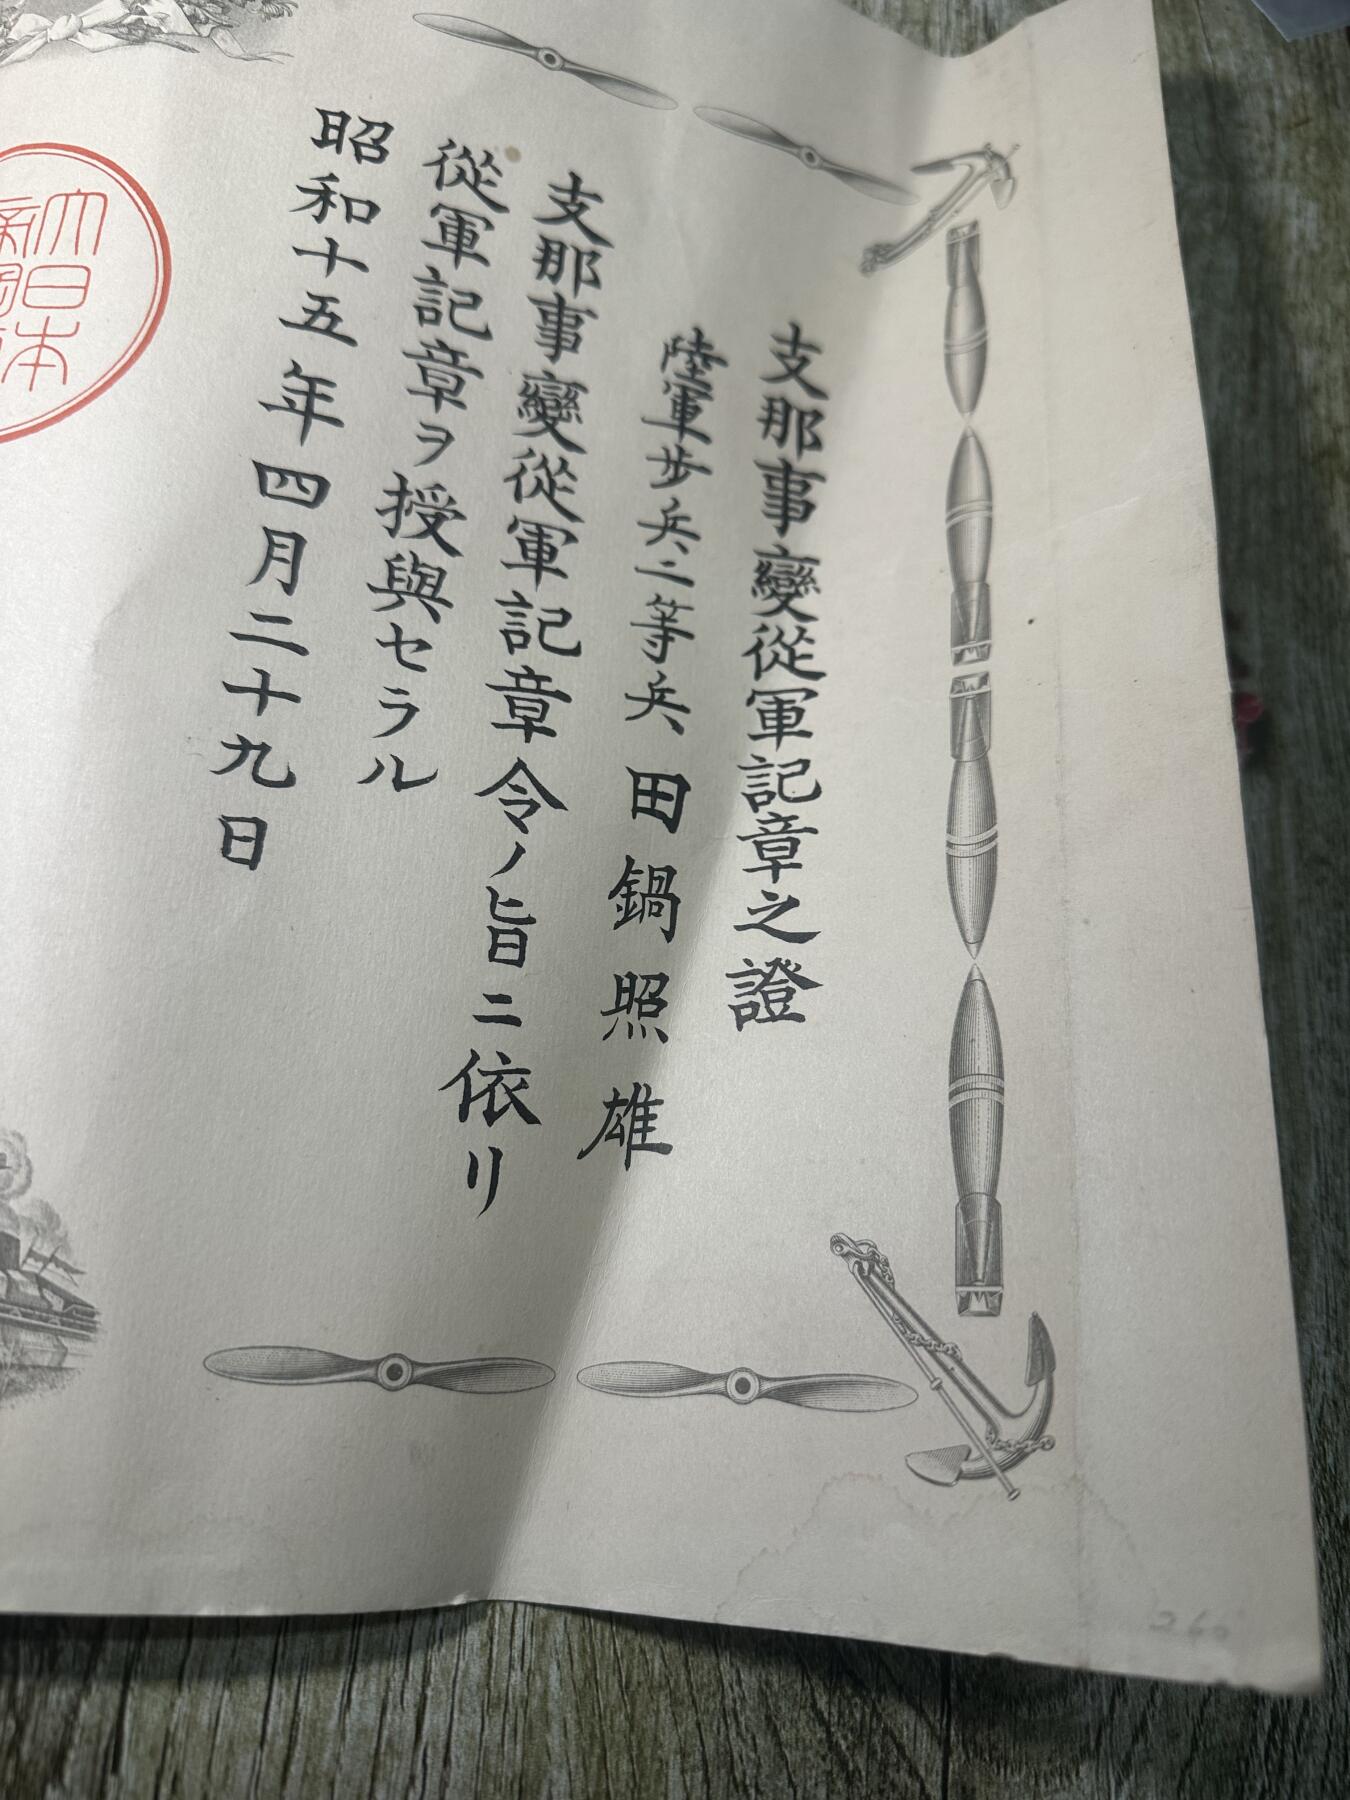 支那事變從軍記章之證
陸軍步兵二等兵 田鍋照雄
支那事變從軍記章令ノ旨ニ依リ
從軍記章ヲ授與セラル
昭和十五年四月二十九日
大日本
帝國
260